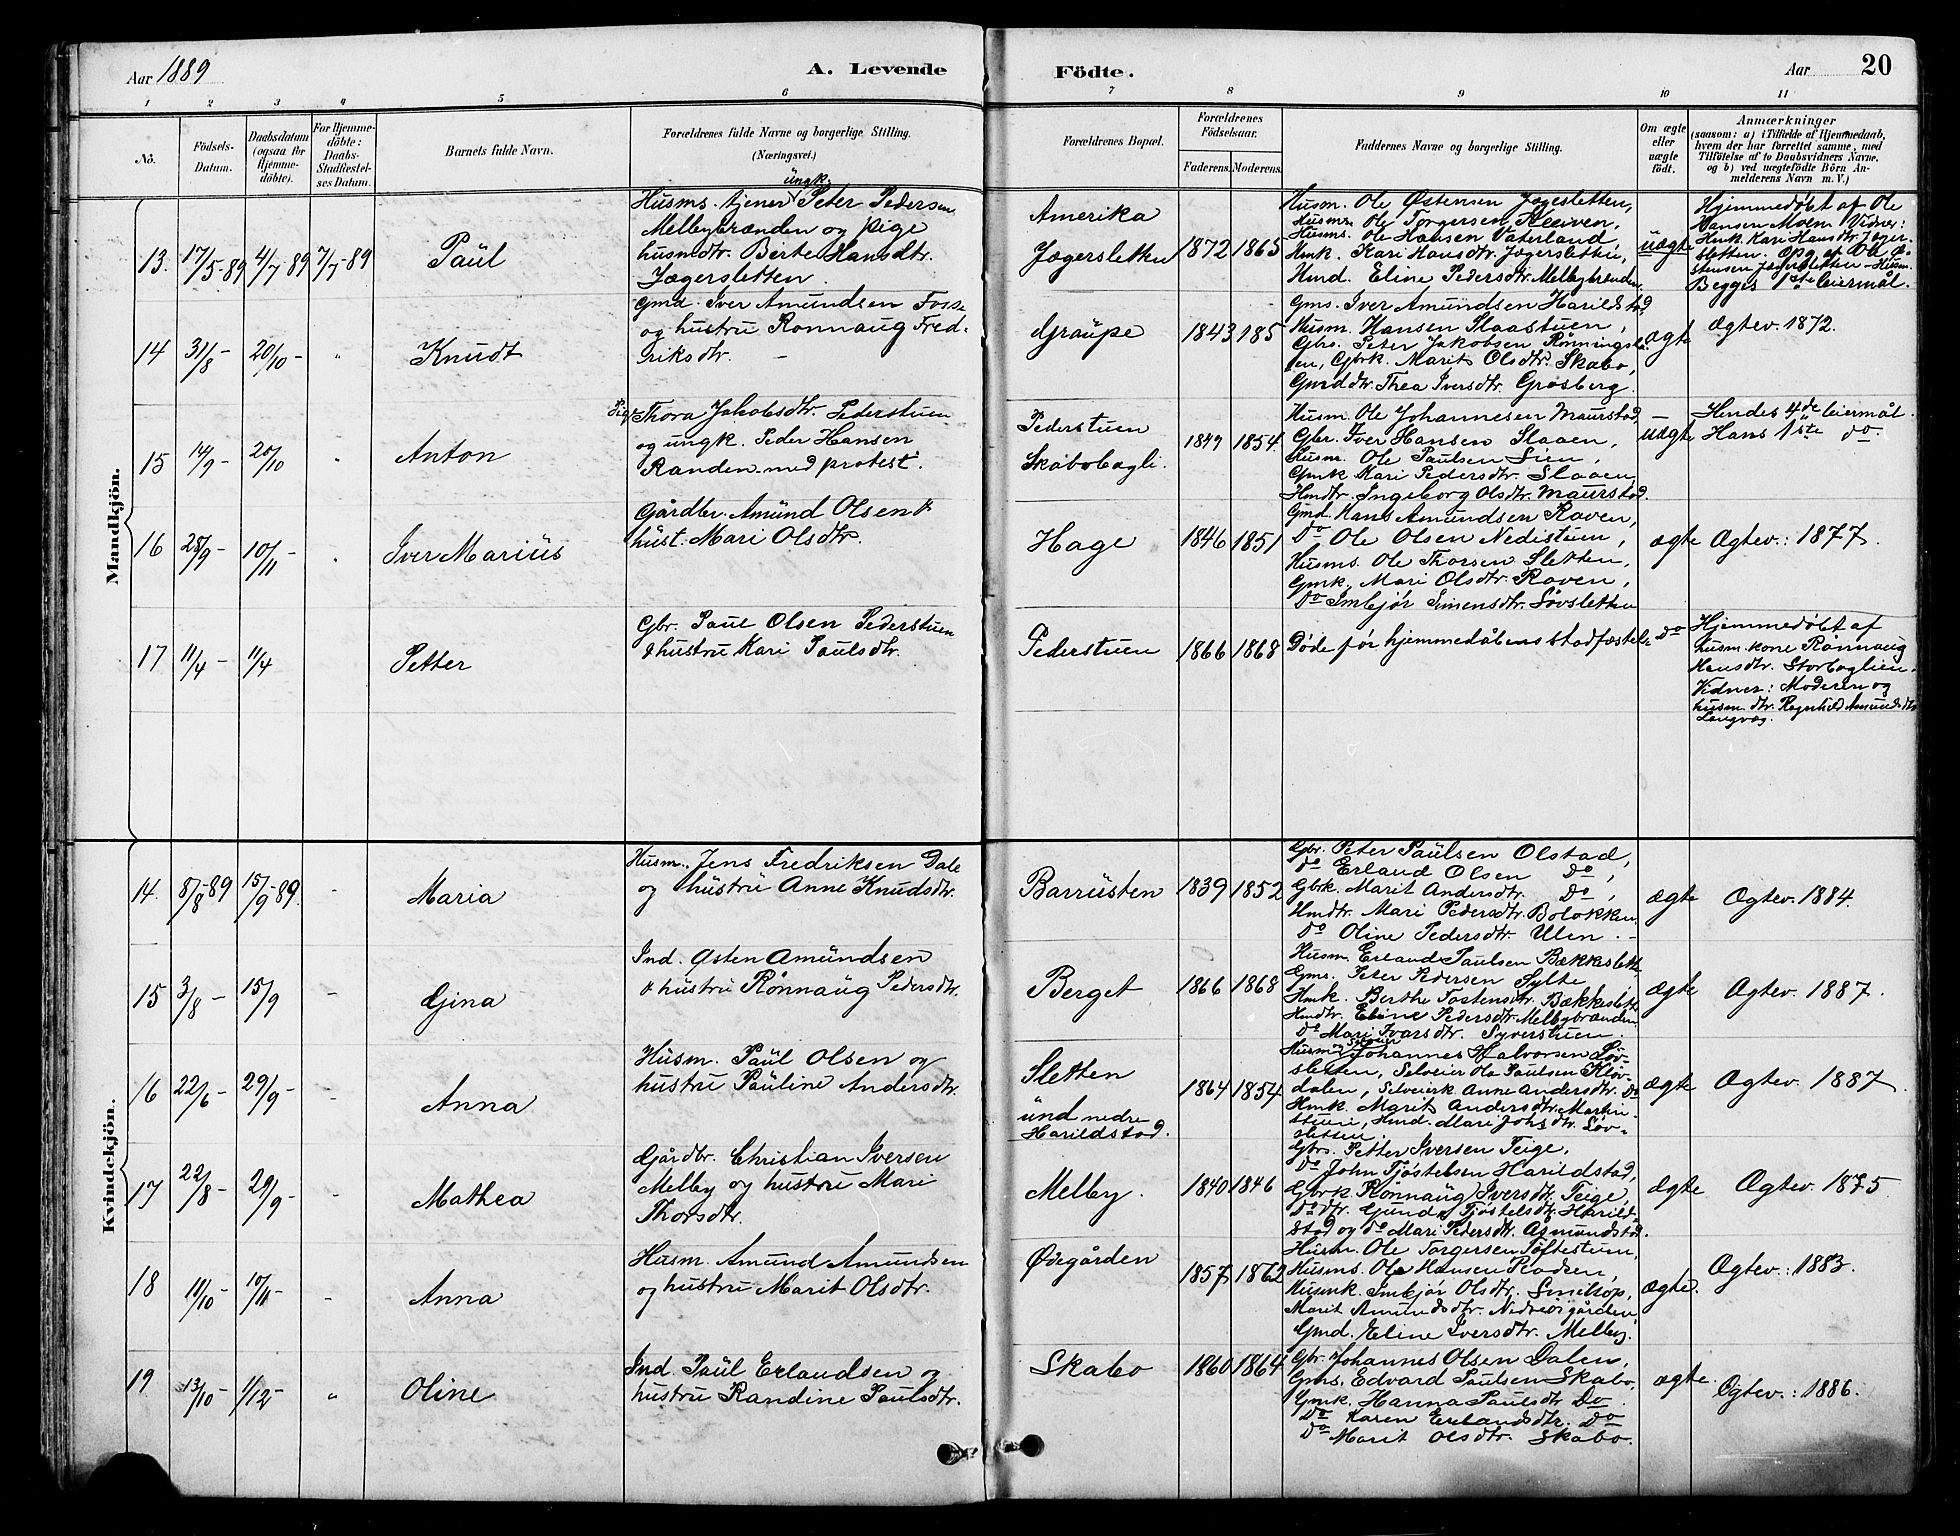 Aar 1889
A. Levende
Födte.
Aar
20
1 2 3 4 5 6 7 8 9 10 11
No.
Födsels-
Datum.
Daabsdatum
(ogsaa for
Hjemme-
döbte).
For Hjemme-
döbte:
Daabs-
Stadfæstel-
ses Datum.
Barnets fulde Navn.
Forældrenes fulde Navne og borgerlige Stilling.
(Næringsvei.)
Forældrenes Bopæl.
Forældrenes
Födselsaar.
Faderens.
Moderens.
Faddernes Navne og borgerlige Stilling.
Om ægte
eller
uægte
født.
Anmærkninger
(saasom: a) i Tilfælde af Hjemmedaab,
hvem der har forrettet samme, med
Tilföielse af to Daabsvidners Navne,
og b) ved uægtefödte Börn An-
melderens Navn m. V.)
Mandkjön.
13. 17/5-89 4/7-89 7/7-89
Paul
ungk.
Husms. tjener Peter Pedersen
Melbybrænden og pige
husmdtr. Berte Hansdtr.
Jægersletten.
Amerika
Jægersletten
1872 1865
Husm. Ole Østensen Jægesletten,
Husmr. Ole Torgersen Kleiven,
Husms. Ole Hansen Vaterland,
Hmk. Kari Hansdtr. Jægersletten,
Hmd. Eline Pedersdtr. Melbybrænden
uægte
Hjemmedøbt af Ole
Hansen Moen. Vidner:
Hmk. Kari Hansdtr. Jæger-
sletten. Opg. af Ole Ø-
stensen Jægersletten - Husm.
Begges 1ste leiermål.
14 31/8- 20/10- "
Knudt
Gmd. Iver Amundsen Fosse
og hustru Rønnaug Fred-
riksdtr. -
Graupe
1843 185
Gms. Iver Amundsen Harildstad
Husm. Hansen Slaastuen,
Gbrs. Peter Jakobsen Rønningsli-
en, Gbrk. Marit Olsdtr. Skabo,
Gmddtr. Thea Iversdtr. Grosberg.
ægte
Ægtev. 1872.
15 14/9- 20/10 "
Anton
Pige
Thora Jakobsdtr. Pederstuen
og ungk. Peder Hansen
Randen med protest.
Pederstuen
Skabobagli.
1849 1854
Husm. Ole Johannesen Maurstad,
Gbr. Iver Hansen Slaaen,
Husm. Ole Paulsen Lien,
Gmk. Mari Pedersdtr. Slaaen
Hmdtr. Ingeborg Olsdtr. Maurstad.
-
uægte
Hendes 4de leiermål.
Hans 1ste do.
16 28/9- 10/11- "
Iver Marius
Gårdbr. Amund Olsen &
hust. Mari Olsdtr.
Hage
1846 1851
Gmd. Hans Amundsen Raven,
Do Ole Olsen Nedistuen,
Husms. Ole Thorsen Sletten,
Gmk. Mari Olsdtr. Raven,
Do Imbjør Simensdtr. Løvsletten
ægte
Ægtev.: 1877.
17 11/4- 11/4
Petter
Gbr. Paul Olsen Pederstuen
& hustru Kari Paulsdtr.
Pederstuen
1866 1868
Døde før hjemmedåbens stadfæstelse
Do
Hjemmedøbt af
husm. kone Rønnaug
Hansdtr. Storbaglien.
Vidner: Moderen og
husm. dtr. Ragnhild Amundsdtr.
Langvæg.
Kvindekjön.
14. 8/8-89 15/9-89. -
Maria
Husm. Jens Fredriksen Dale
og hustru Anne Knudsdtr.
Barrusten
1839 1852
Gbr. Peter Paulsen Olstad,
Do Erland Olsen Do,
Gbrk. Marit Andersdtr. Do,
Hmdtr. Mari Pedersdtr. Boløkken
Do Oline Pedersdtr. Ulen. -
ægte
Ægtev. 1884.
15 3/8- 15/9 -
Gina
Ind. Østen Amundsen
& hustru Rønnaug Pedersdtr.
Berget
1866 1868
Husm. Erland Paulsen Bækkeslett.
Gms. Peter Pedersen Sylte,
Hmk. Berthe Tostensdtr. Bækkeslett.
Hmdtr. Eline Pedersdtr. Melbybrænden
Do Mari Ivarsdtr. Syverstuen.
ægte
Ægtev. 1887.
16 22/6- 29/9- -
Anna
Husm. Paul Olsen og
hustru Pauline Andersdtr.
Sletten
und nedre
Harildstad.
1864 1854
Husm. Selveier Johannes Halvorsen Løv-
sletten, Selveier Ole Paulsen Kløv-
dalen, Selveierk. Anne Andersdtr. Do
Hmk. Marit Andersdtr. Martin-
stuen, Hmd. Mari Johsdtr. Løv-
sletten.
ægte
Ægtev. 1887.
17 22/8- 29/9- -
Mathea
Gårdbr. Christian Iversen
Melby og hustru Mari
Thorsdtr.
Melby.
1840 1846
Gbrs. Petter Iversen Teige,
Do John Tjøstelsen Harildstad,
Gbrk Rønnaug Iversdtr. Teige
Do dtr. Gunda Tjøstelsdtr. Harild-
stad og do Mari Pedersdtr. Asmundstad.
ægte
Ægtev. 1875.
18 11/10- 10/11- -
Anna
Husm. Amund Amundsen
og hustru Marit Olsdtr.
Ødegården
1857 1862
Husm. Ole Torgersen Tøftestuen,
Husms. Ole Hansen Roden,
Husmk. Imbjør Olsdtr. Smikop,
Marit Amundsdtr. Nedreødgården,
Gmd. Eline Iversdtr. Melby.
ægte.
Ægtev.: 1883.
19 13/10- 1/12- "
Oline
Ind. Paul Erlandsen og
hustru Randine Paulsdtr.
Skabo
1860 1864
Gbr. Johannes Olsen Dalen,
Gms. Edvard Paulsen Skabo,
Gmk. Hanna Paulsdtr Do.
Do Karen Erlandsdtr. Do
Do Marit Olsdtr. Skabo.
ægte.
Ægtev.: 1886.